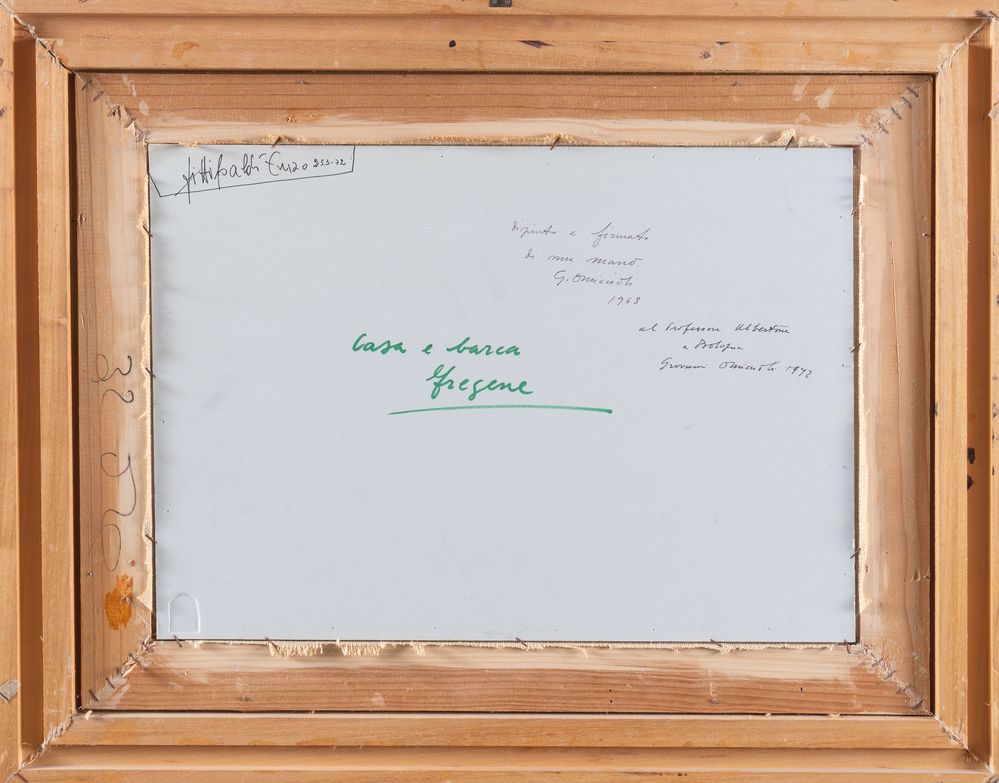 Fittipaldi Enzo 253-72
dipinto e firmato
di mia mano
G. Omiccioli
1968
al Professore Albertone
a Bologna
Giovanni Omiccioli 1972
Casa e barca
Fregene
32